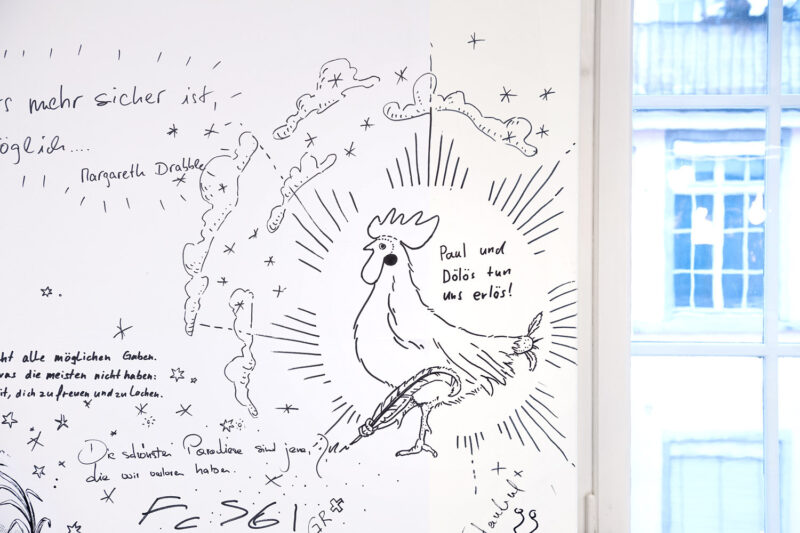 mehr sicher ist,
Margareth Drabble
Paul und
Dölös tun
uns erlös!
alle möglichen Gaben.
was die meisten nicht haben:
dich zu freuen und zu lachen.
Die schönsten Paradiese sind jene,
die wir verloren haben.
FC S61